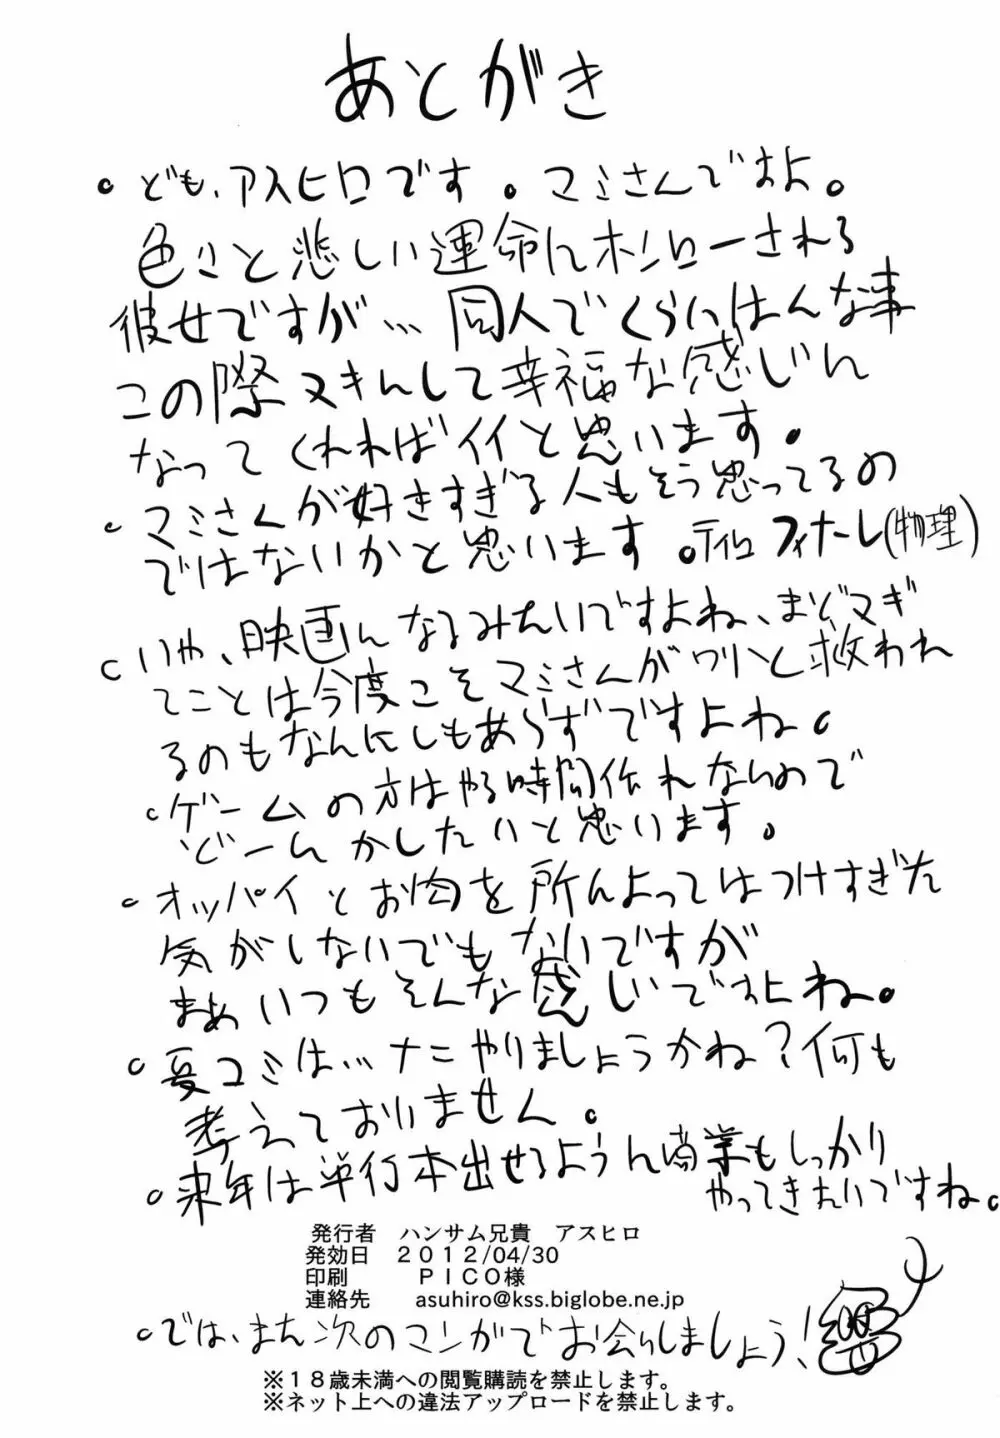 あとがき
・ども、アスヒロです。マミさんですよ。
色々と悲しい運命にホンローされる
彼女ですが… 同人でくらいはんな事
この際ヌキにして幸福な感じに
なってくれればイイと思います。
・マミさんが好きすぎる人もそう思ってるの
ではないかと思います。ティロ フィナーレ(物理)
・いや、映画になるみたいですよね、まどマギ
てことは今度こそマミさんがワリと救われ
るのもなんにしもあらずですよね。
・ゲームの方はやる時間作れないので
どーにかしたいと思います。
・オッパイとお肉を所によってはつけすぎた
気がしないでもないですが
まぁいつもそんな感じですよね。
・夏コミは… ナニやりましょうかね?何も
考えておりません。
・来年は単行本出せるように商業もしっかり
やってきたいですね。
発行者 ハンサム兄貴 アスヒロ
発効日 2012/04/30
印刷 PICO様
連絡先 asuhiro@kss.biglobe.ne.jp
・では、また次のマンガでお会いしましょう!
※18歳未満への閲覧購読を禁止します。
※ネット上への違法アップロードを禁止します。